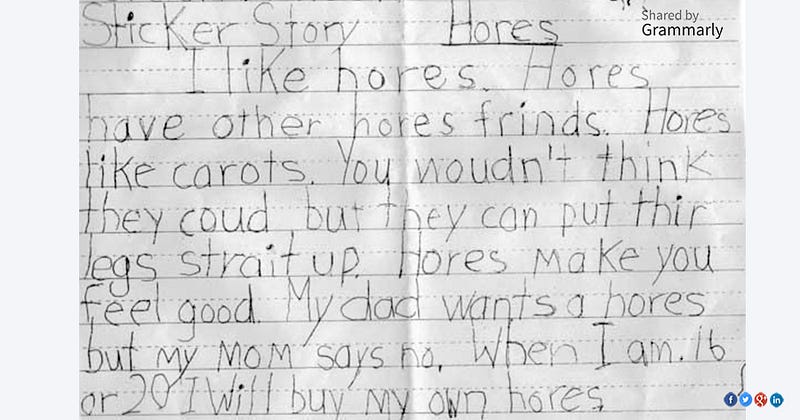 Sticker Story Hores
Shared by
Grammarly
I like hores. Hores
have other hores frinds. Hores
like carots. You woudn't think
they coud, but they can put thir
legs strait up. Hores make you
feel good. My dad wants a hores
but my mom says no. When I am. 16
or 20 I will buy my own hores